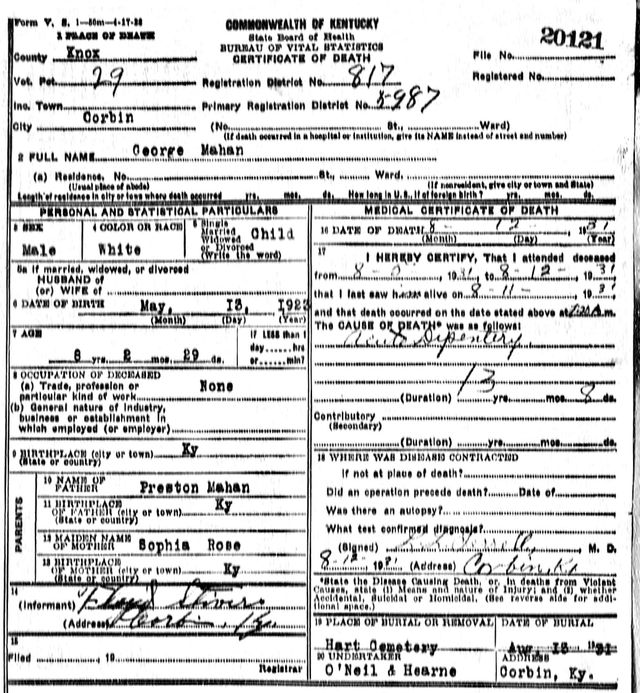 Form V. S. 1—50m—4-17-28
COMMONWEALTH OF KENTUCKY
State Board of Health
BUREAU OF VITAL STATISTICS
CERTIFICATE OF DEATH
1 PLACE OF DEATH
County Knox
File No. 20121
Vot. Pct. 29
Registration District No. 817
Registered No.
Inc. Town
Primary Registration District No. 5987
City Corbin (No. St., Ward)
(If death occurred in a hospital or institution, give its NAME instead of street and number)
2 FULL NAME George Mahan
(a) Residence. No. St., Ward.
(Usual place of abode) (If nonresident, give city or town and State)
Length of residence in city or town where death occurred yrs. mos. ds. How long in U.S., if of foreign birth? yrs. mos. ds.
PERSONAL AND STATISTICAL PARTICULARS
3 SEX Male
4 COLOR OR RACE White
5 Single Married Widowed or Divorced (Write the word) Child
5a If married, widowed, or divorced
HUSBAND of
(or) WIFE of
6 DATE OF BIRTH May, 13, 1923
(Month) (Day) (Year)
7 AGE 8 yrs. 2 mos. 29 ds.
IF LESS than 1 day hrs or min?
8 OCCUPATION OF DECEASED
(a) Trade, profession or particular kind of work None
(b) General nature of industry,
business or establishment in
which employed (or employer)
9 BIRTHPLACE (city or town) Ky
(State or country)
PARENTS
10 NAME OF FATHER Preston Mahan
11 BIRTHPLACE OF FATHER (city or town) Ky
(State or country)
12 MAIDEN NAME OF MOTHER Sophia Rose
13 BIRTHPLACE OF MOTHER (city or town) Ky
(State or country)
14
(Informant) Floyd Stivers
(Address) Corbin, Ky.
15
Filed , 19
Registrar
MEDICAL CERTIFICATE OF DEATH
16 DATE OF DEATH 8- 12- 1931
(Month) (Day) (Year)
17
I HEREBY CERTIFY, That I attended deceased
from 8- 1931, to 8-12- 1931
that I last saw alive on 8-11- 1931
and that death occurred on the date stated above at m.
The CAUSE OF DEATH* was as follows:
13
(Duration) yrs. mos. 8 ds.
Contributory
(Secondary)
(Duration) yrs. mos. ds.
18 WHERE WAS DISEASE CONTRACTED
If not at place of death?
Did an operation precede death? Date of
Was there an autopsy?
What test confirmed diagnosis?
(Signed) M. D.
8-12- 1931 (Address) Corbin Ky
*State the Disease Causing Death, or, in deaths from Violent
Causes, state (1) Means and nature of Injury; and (2) whether
Accidental, Suicidal or Homicidal. (See reverse side for addi-
tional space.)
19 PLACE OF BURIAL OR REMOVAL Hart Cemetery
DATE OF BURIAL Aug. 13 '31
20 UNDERTAKER O'Neil & Hearne
ADDRESS Corbin, Ky.